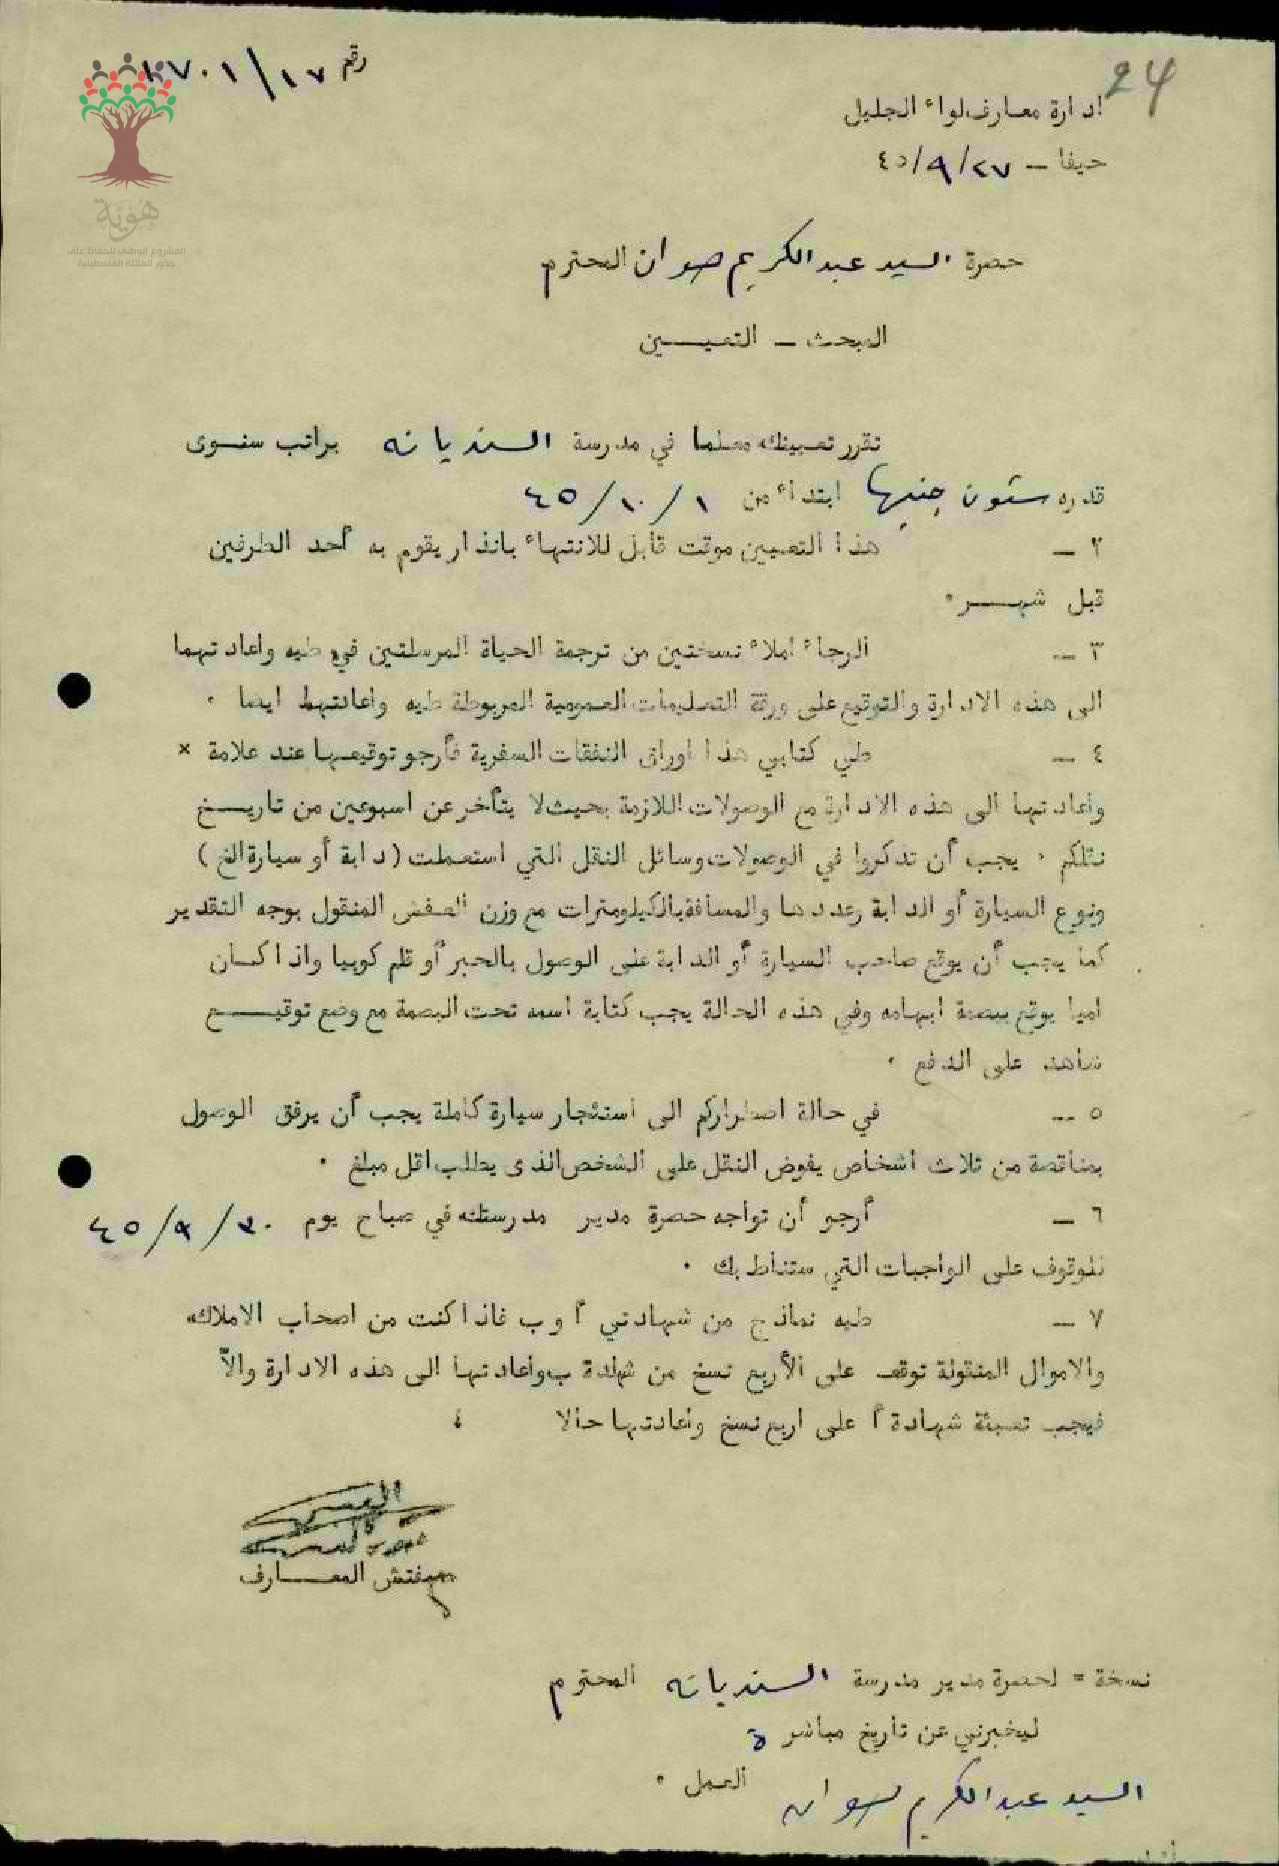 24
رقم ١٧/١٧٠١
ادارة معارف لواء الجليل
حيفا – ٤٥/٩/٢٧
هُويَّة
المشروع الوطني للحفاظ على
جذور العائلة الفلسطينية
حضرة السيد عبد الكريم صوان المحترم
المبحث – التعيـــــين
تقرر تعيينك معلما في مدرسة السنديانه براتب سنوى
قدره ستون جنيها ابتداء من ٤٥/١٠/١
٢ – هذا التعيين موقت قابل للانتهاء بانذار يقوم به أحد الطرفين
قبل شهـــر٠
٣ – الرجاء املاء نسختين من ترجمة الحياة المرسلتين في طيه واعادتهما
الى هذه الادارة والتوقيع على ورقة التعليمات العمومية المربوطة طيه واعادتهما ايضا ٠
٤ – طي كتابي هذا اوراق النفقات السفرية فأرجو توقيعها عند علامة ×
واعادتها الى هذه الادارة مع الوصولات اللازمة بحيث لا يتأخر عن اسبوعين من تاريـــخ
نقلكم ٠ يجب أن تذكروا في الوصولات وسائل النقل التي استعملت (دابة أو سيارة الخ)
ونوع السيارة أو الدابة وعددها والمسافة بالكيلومترات مع وزن العفش المنقول بوجه التقدير
كما يجب أن يوقع صاحب السيارة أو الدابة على الوصول بالحبر أو قلم كوبيا واذا كـان
اميا يوقع ببصمة ابهامه وفي هذه الحالة يجب كتابة اسمه تحت البصمة مع وضع توقيـــع
شاهد على الدفع ٠
٥ – في حالة اضطراركم الى استئجار سيارة كاملة يجب أن يرفق الوصول
بمناقصة من ثلاث اشخاص يفوض النقل على الشخص الذى يطلب اقل مبلغ ٠
٦ – أرجو أن تواجه حضرة مدير مدرستك في صباح يوم ٤٥/٩/٣٠
للوقوف على الواجبات التي ستناط بك ٠
٧ – طيه نماذج من شهادتي أ و ب فاذا كنت من اصحاب الاملاك
والاموال المنقولة توقع على الأربع نسخ من شهادة ب واعادتها الى هذه الادارة والاّ
فيجب تعبئة شهادة أ على اربع نسخ واعادتها حالا ٤
مفتش المعـــارف
نسخة = لحضرة مدير مدرسة السنديانه المحترم
ليخبرني عن تاريخ مباشرة
السيد عبد الكريم صوان العمل ٠